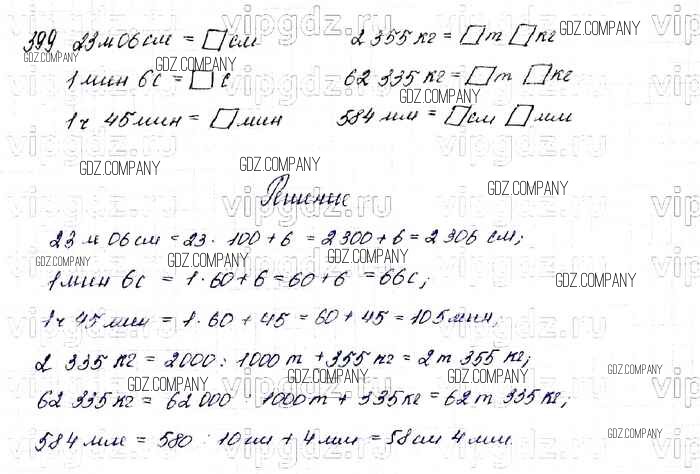 399 23 м 06 см = □ см 2 355 кг = □ т □ кг
1 мин 6 с = □ с 62 335 кг = □ т □ кг
1 ч 45 мин = □ мин 584 мм = □ см □ мм
Решение
23 м 06 см = 23 · 100 + 6 = 2300 + 6 = 2 306 см;
1 мин 6 с = 1 · 60 + 6 = 60 + 6 = 66 с;
1 ч 45 мин = 1 · 60 + 45 = 60 + 45 = 105 мин;
2 335 кг = 2000 : 1000 т + 355 кг = 2 т 355 кг;
62 335 кг = 62 000 : 1000 т + 335 кг = 62 т 335 кг;
584 мм = 580 : 10 см + 4 мм = 58 см 4 мм.
vipgdz.ru
GDZ.COMPANY